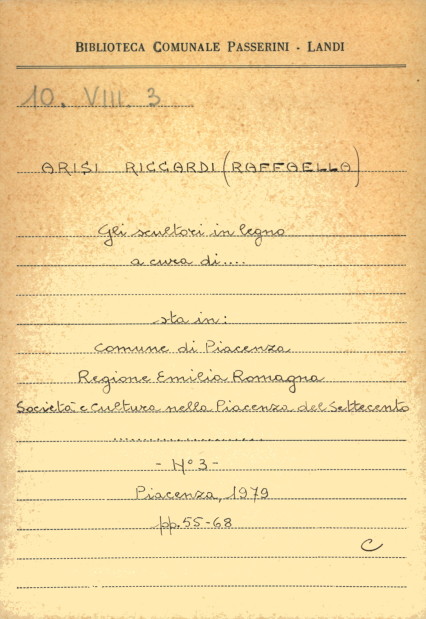 BIBLIOTECA COMUNALE PASSERINI - LANDI
10. VIII. 3
ARISI RICCARDI (RAFFAELLA)
Gli scultori in legno
a cura di....
sta in:
Comune di Piacenza
Regione Emilia Romagna
Società e cultura nella Piacenza del Settecento
......................
- N° 3 -
Piacenza, 1979
pp. 55-68
C